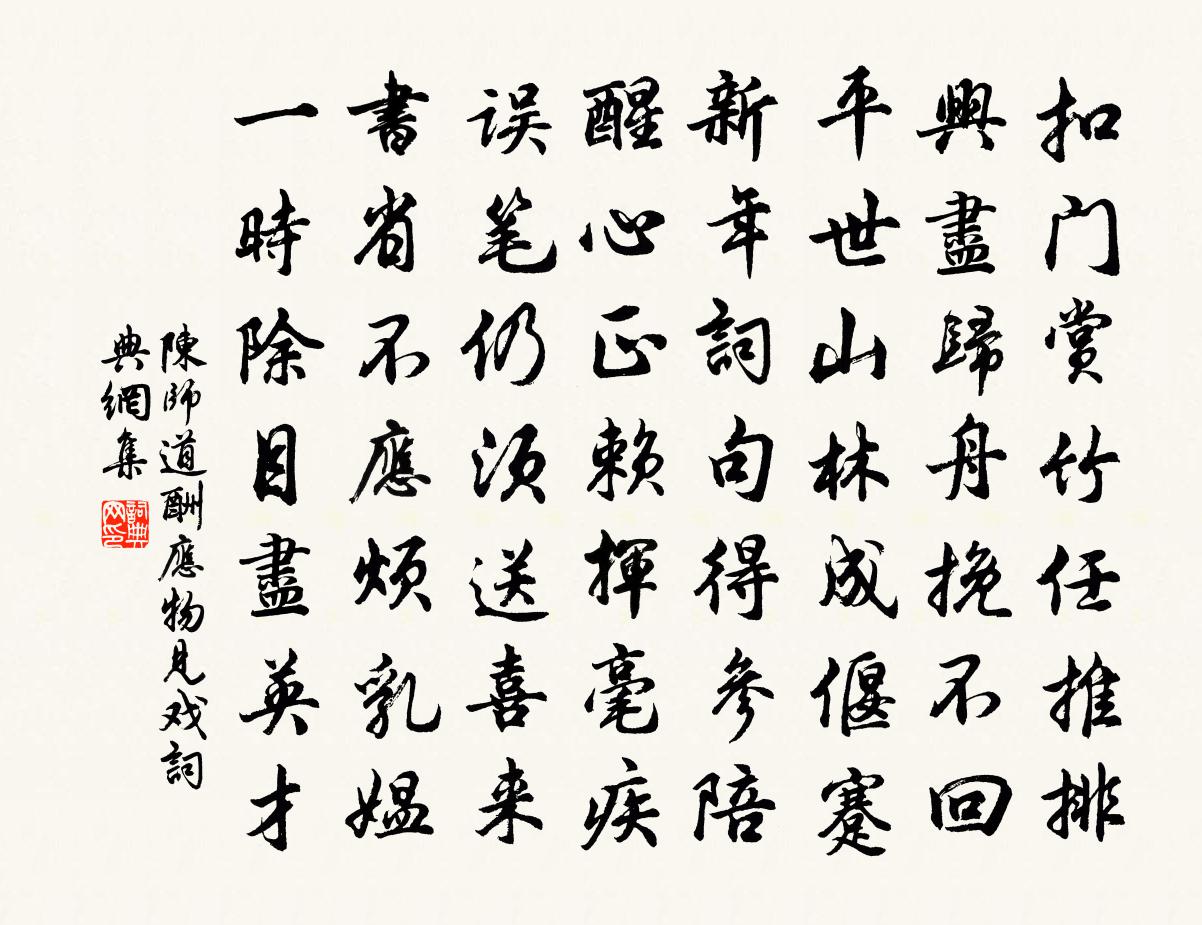 扣门赏竹任推排
興盡歸舟挽不回
平世山林成偃蹇
新年詞句得參陪
醒心正賴揮毫疾
误笔仍須送喜来
書省不應煩乳媼
一時除目盡英才
陳師道酬應物見戏詞
典網集
詞典网印